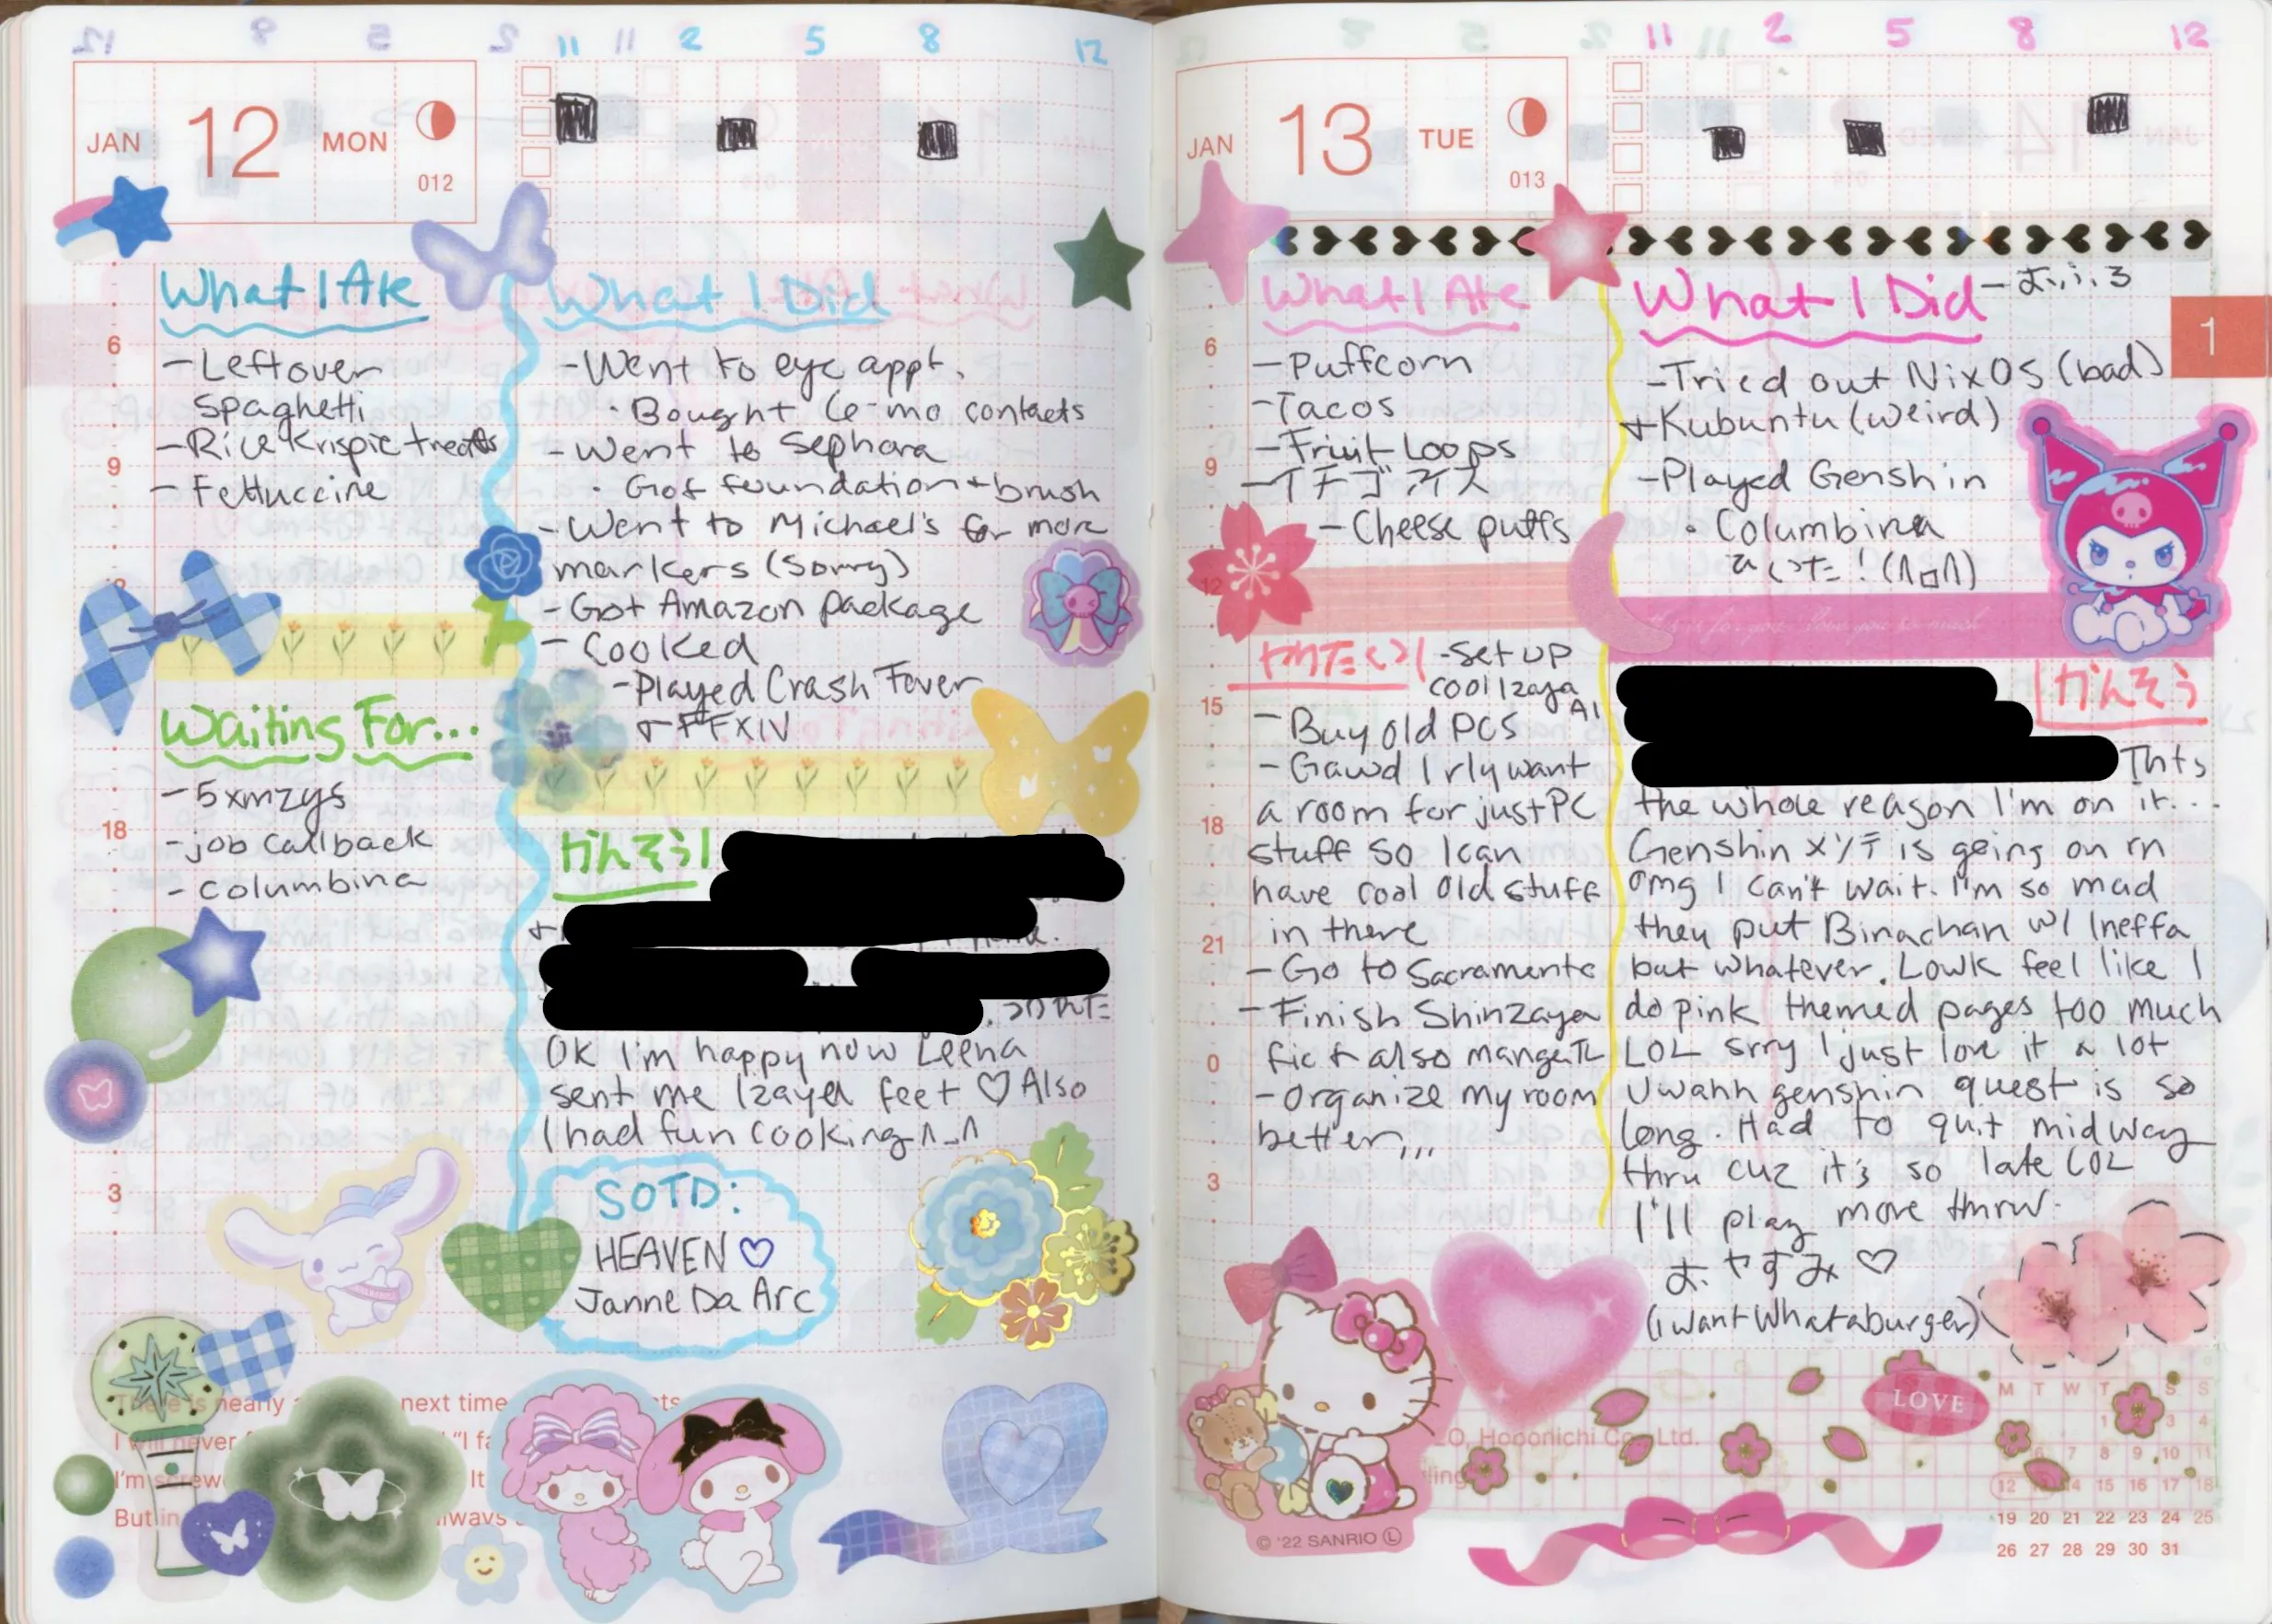 11 11 2 5 8 12
JAN 12 MON
012
What I Ate
-Leftover
Spaghetti
-Rice Krispie treats
- Fettuccine
Waiting For...
-5xmzys
-job callback
-columbina
What I Did
-Went to eye appt.
· Bought Ce-mo contacts
-Went to Sephora
· Got foundation + brush
-Went to Michael's for more
markers (sorry)
-Got Amazon package
- Cooked
-Played Crash Fever
+ FFXIV
かんそう
OK I'm happy now Leena
sent me Izaya feet ♡ Also
I had fun cooking ^_^
SOTD:
HEAVEN ♡
Janne Da Arc
6
9
18
3
next time
I will never
"I fa
I'm screw
It
But in
always
11 11 2 5 8 12
JAN 13 TUE
013
1
What I Ate
-Puffcorn
-Tacos
-Fruit Loops
-イチゴアイス
-Cheese puffs
やりたい
-Set up
cool Izaya
AI
-Buy old PCS
-Gawd I rly want
a room for just PC
stuff so I can
have cool old stuff
in there
-Go to Sacramento
-Finish Shinzaya
fic + also manga
-organize my room
better,,,
What I Did
-おふろ
-Tried out NixOS (bad)
+Kubuntu (weird)
-Played Genshin
· Columbina
かんそう
Thts
the whole reason I'm on it...
Genshin メンテ is going on rn
omg I can't wait. I'm so mad
they put Binachan w/ Ineffa
but whatever. Lowk feel like I
do pink themed pages too much
LOL srry I just love it a lot
Uwahh genshin quest is so
long. Had to quit midway
thru cuz it's so late LOL
I'll play more tmrw.
おやすみ ♡
(i want Whataburger)
6
9
12
15
18
21
0
3
LOVE
Hobonichi Co., Ltd.
© '22 SANRIO Ⓛ
M T W T S S
3 4
7 8 9 10 11
12 14 15 16 17 18
19 20 21 22 23 24 25
26 27 28 29 30 31